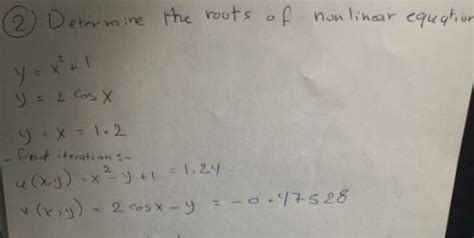 ② Determine the roots of nonlinear equation
y = x² + 1
y = 2 cos x
y = x = 1.2
- First iteration :-
u(x,y) = x² - y + 1 = 1.24
v(x,y) = 2 cosx - y = -0.47528